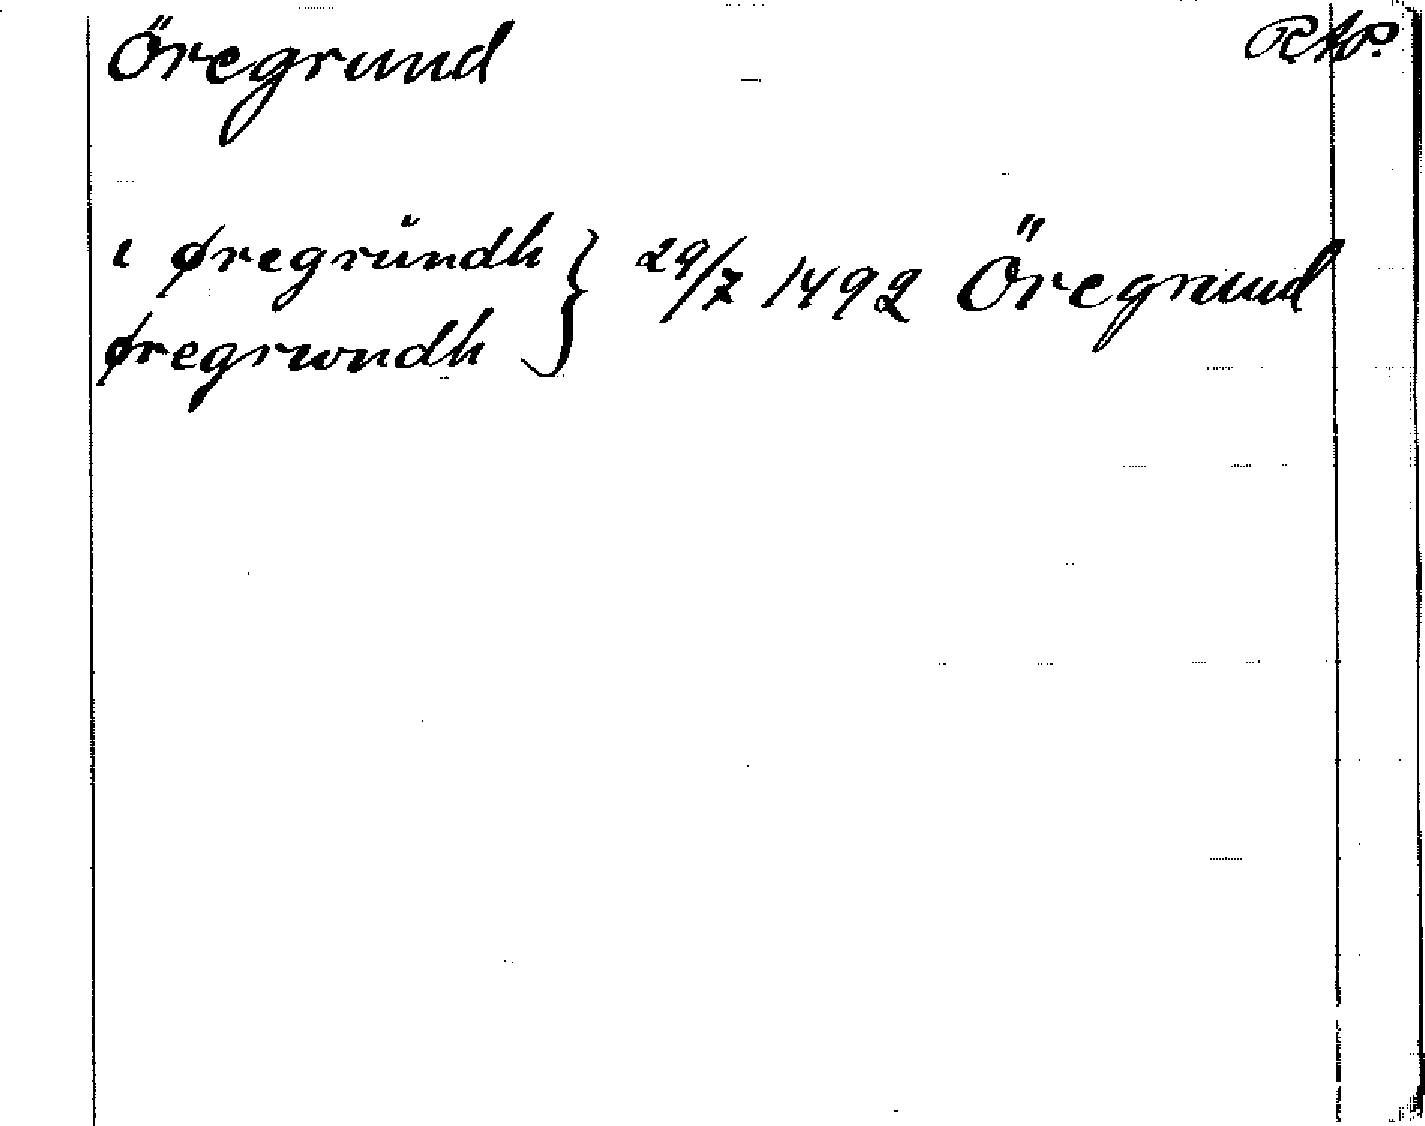 Öregrund RAp.
i øregrŭndh } 29/7 1492 Öregrund
øregrwndh